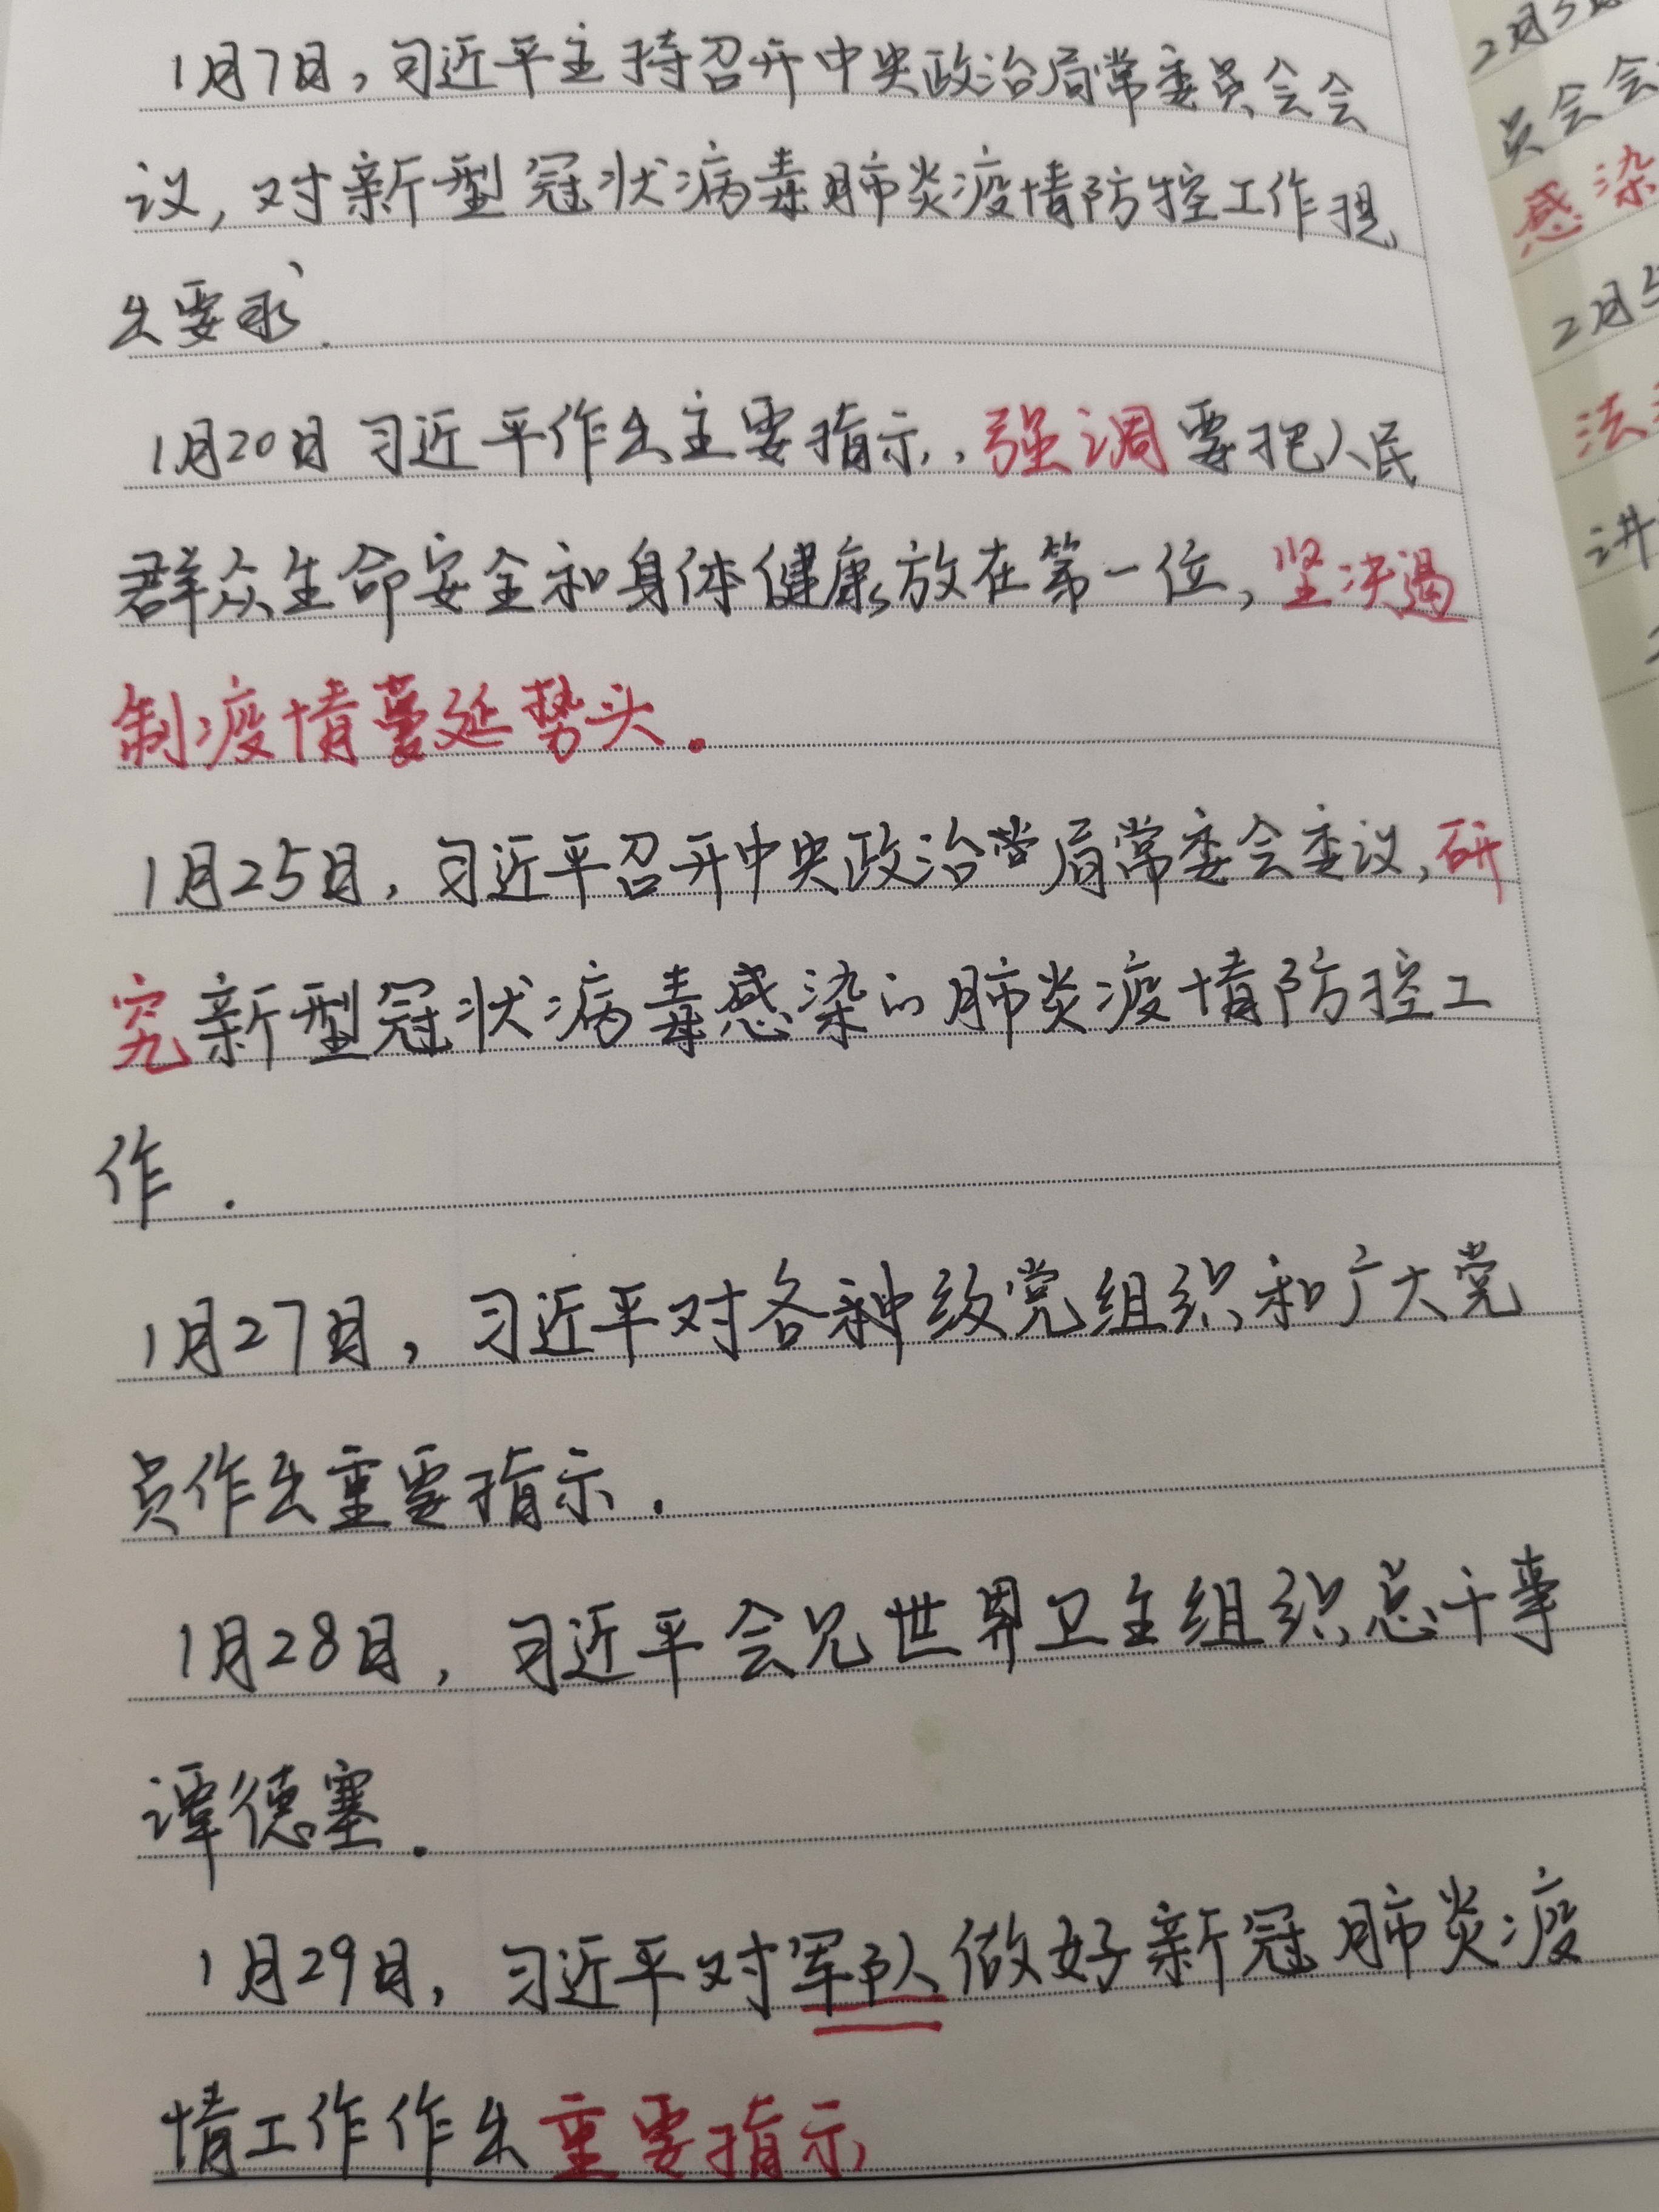 1月7日，习近平主持召开中央政治局常委员会会
议，对新型冠状病毒肺炎疫情防控工作提
出要求.
1月20日 习近平作出主要指示，强调要把人民
群众生命安全和身体健康放在第一位，坚决遏
制疫情蔓延势头。
1月25日，习近平召开中央政治党局常委会委议，研
究新型冠状病毒感染的肺炎疫情防控工
作.
1月27日，习近平对各种级党组织和广大党
员作出重要指示.
1月28日，习近平会见世界卫生组织总干事
谭德塞.
1月29日，习近平对军队做好新冠肺炎疫
情工作作出重要指示
2月3日
员会会
感染
2月5
法
讲